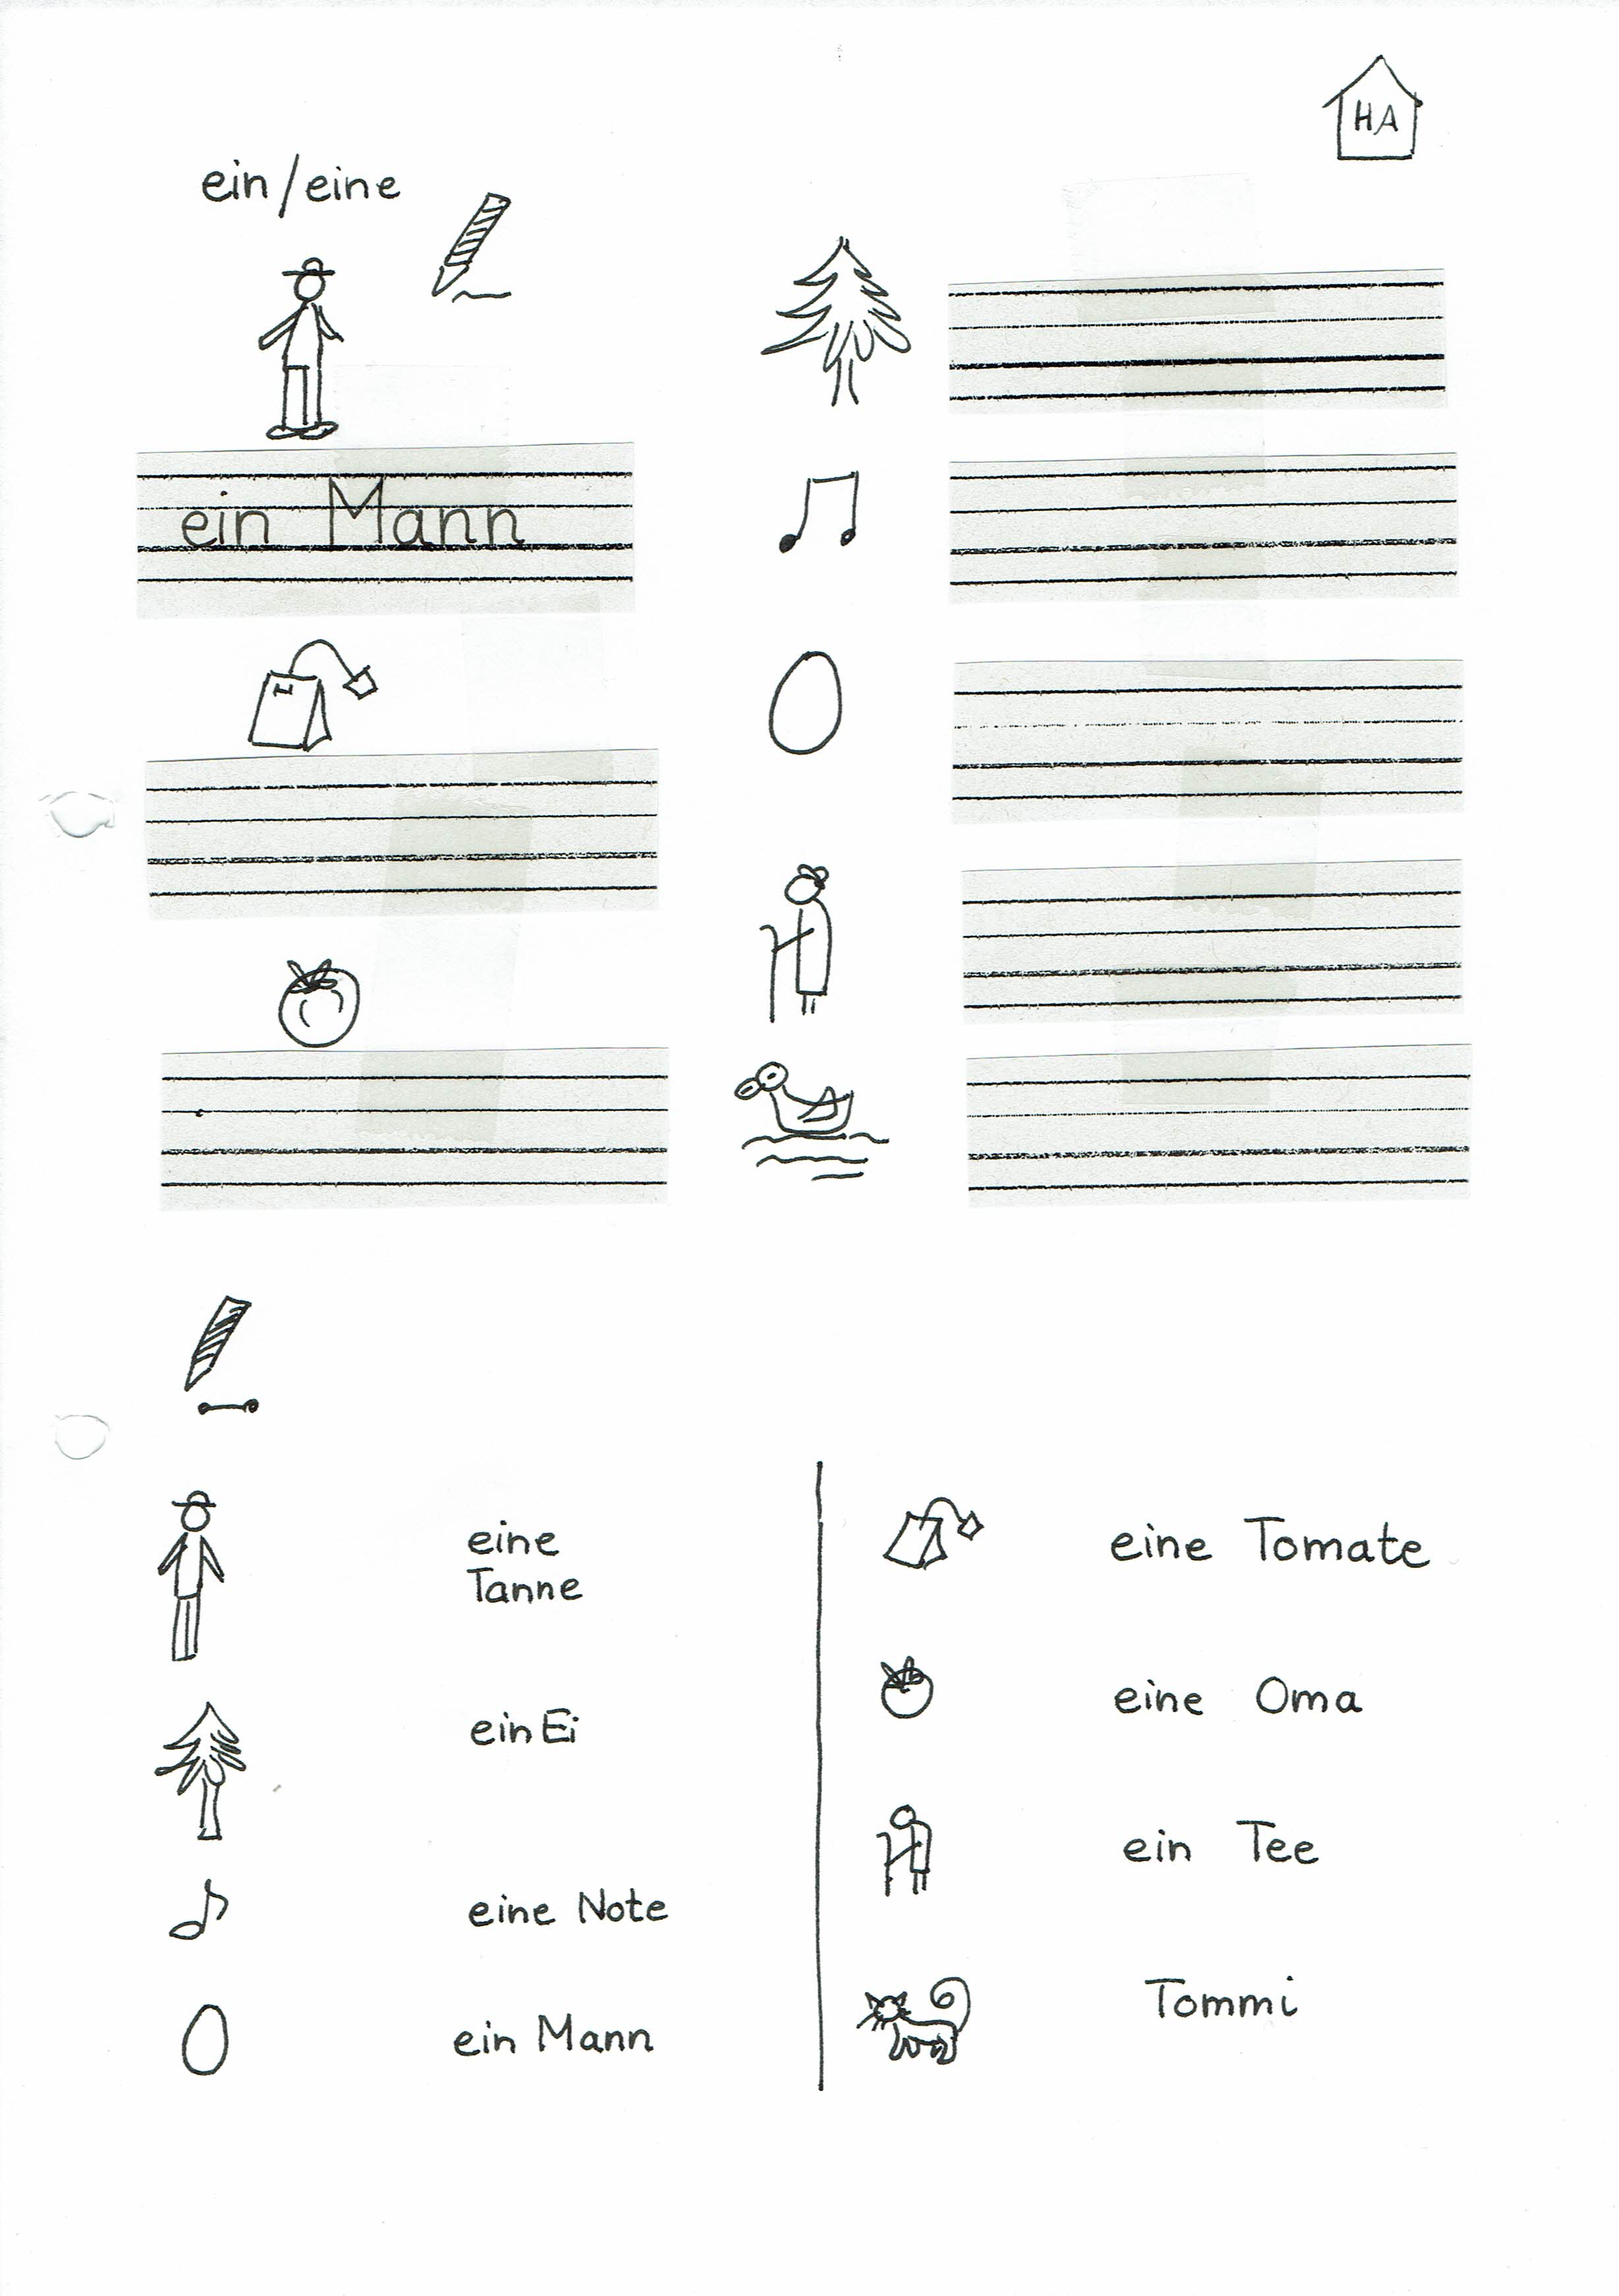 HA
ein/eine
ein Mann
eine
Tanne
ein Ei
eine Note
ein Mann
eine Tomate
eine Oma
ein Tee
Tommi